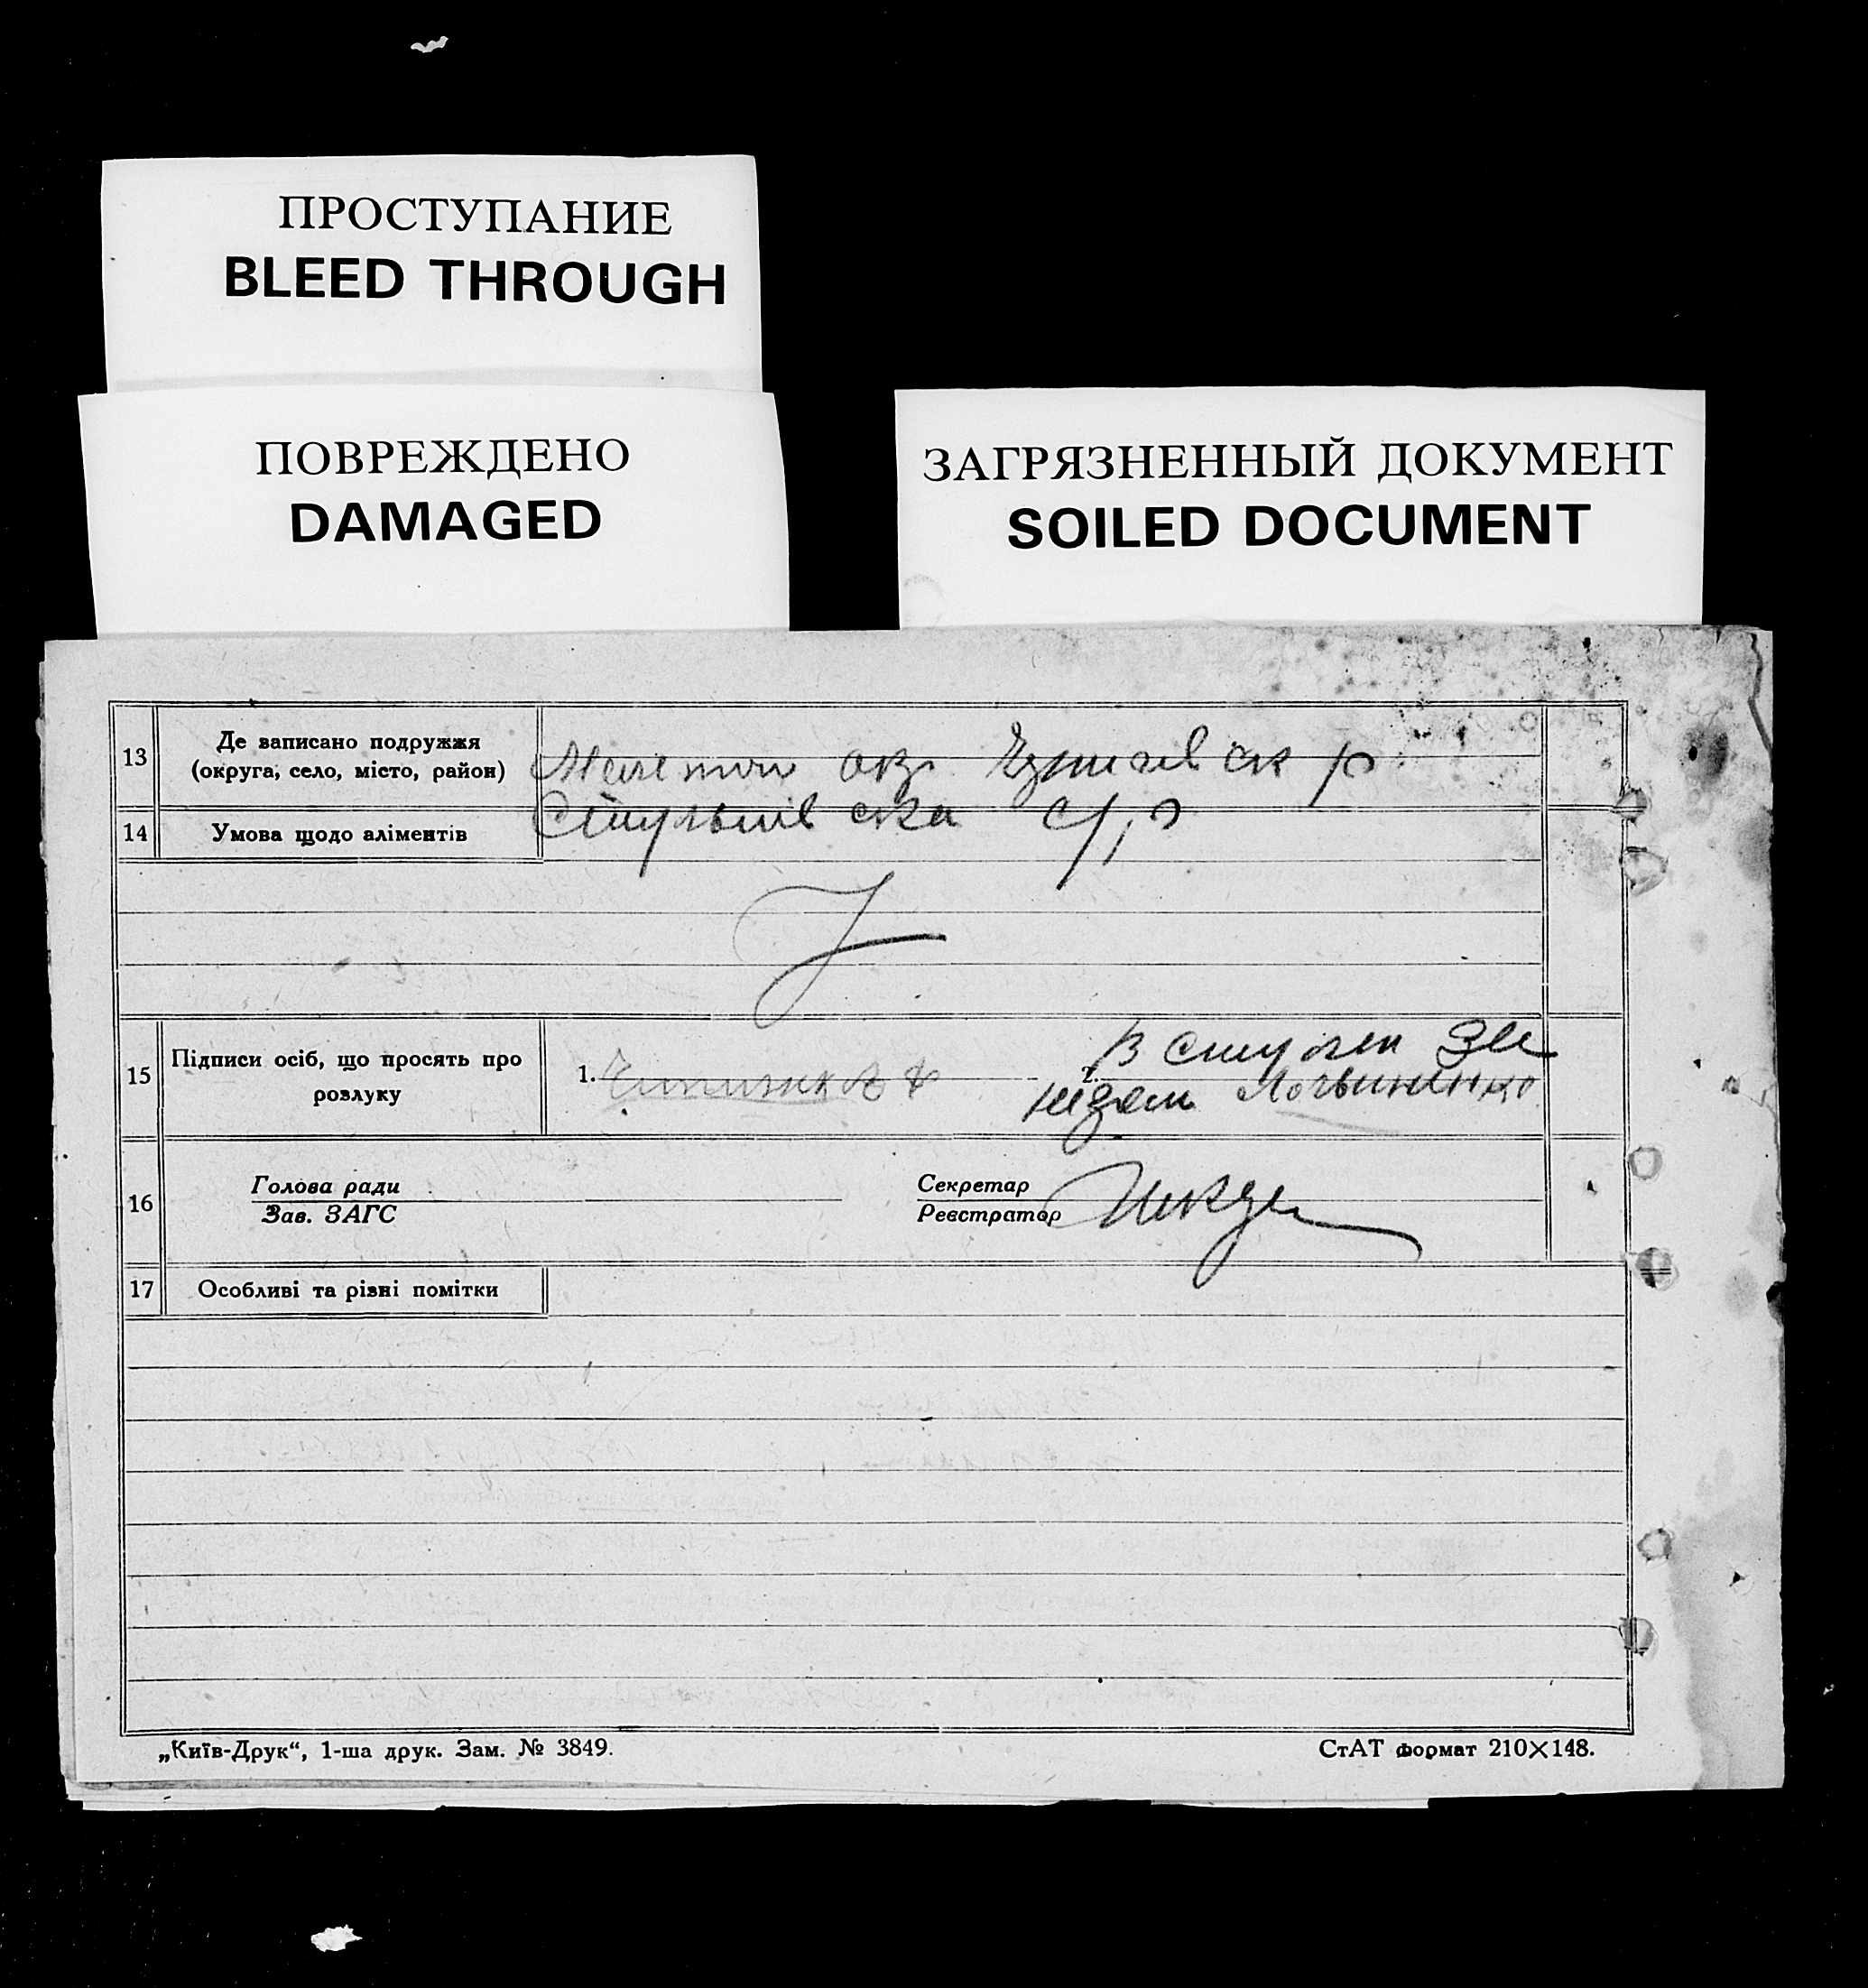 ПРОСТУПАНИЕ
BLEED THROUGH
ПОВРЕЖДЕНО
DAMAGED
ЗАГРЯЗНЕННЫЙ ДОКУМЕНТ
SOILED DOCUMENT
13 Де записано подружжя
(округа, село, місто, район)
окр. р
14 Умова щодо аліментів
ска с/р
15 Підписи осіб, що просять про
розлуку
1.
2.
Логвиненко
16 Голова ради
Зав. ЗАГС
Секретар
Реєстратор
17 Особливі та різні помітки
„Київ-Друк“, 1-ша друк. Зам. № 3849.
СтАТ формат 210×148.